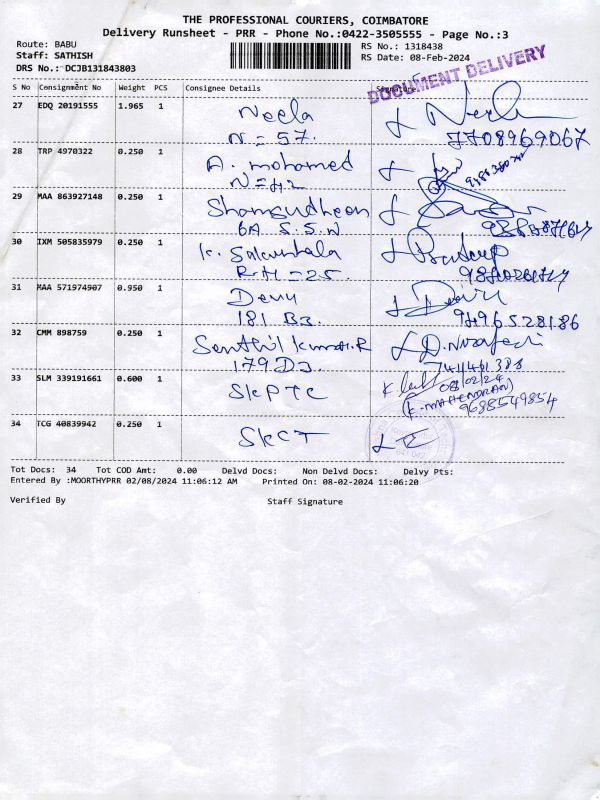 THE PROFESSIONAL COURIERS, COIMBATORE
Delivery Runsheet - PRR - Phone No.:0422-3505555 - Page No.:3
Route: BABU
Staff: SATHISH
DRS No.: DCJB131843803
RS No.: 1318438
RS Date: 08-Feb-2024
DOCUMENT DELIVERY
S No Consignment No Weight PCS Consignee Details Signature
27 EDQ 20191555 1.965 1 Neela
N = 57. 7708969067
28 TRP 4970322 0.250 1 A. mohamed
N = 42
29 MAA 863927148 0.250 1 Shamsudheen
6A S.S.N
30 IXM 505835979 0.250 1 K. Sakunthala Pradeep
R.H = 25.
31 MAA 571974907 0.950 1 Devi
181 B3. 9496528186
32 CMM 898759 0.250 1 Senthil Kumar.R
179 D3.
33 SLM 339191661 0.600 1 SKPTC 08/02/24
(K. MAHENDRAN)
9688549854
34 TCG 40839942 0.250 1 SKCT
Tot Docs: 34 Tot COD Amt: 0.00 Delvd Docs: Non Delvd Docs: Delvy Pts:
Entered By :MOORTHYPRR 02/08/2024 11:06:12 AM Printed On: 08-02-2024 11:06:20
Verified By Staff Signature